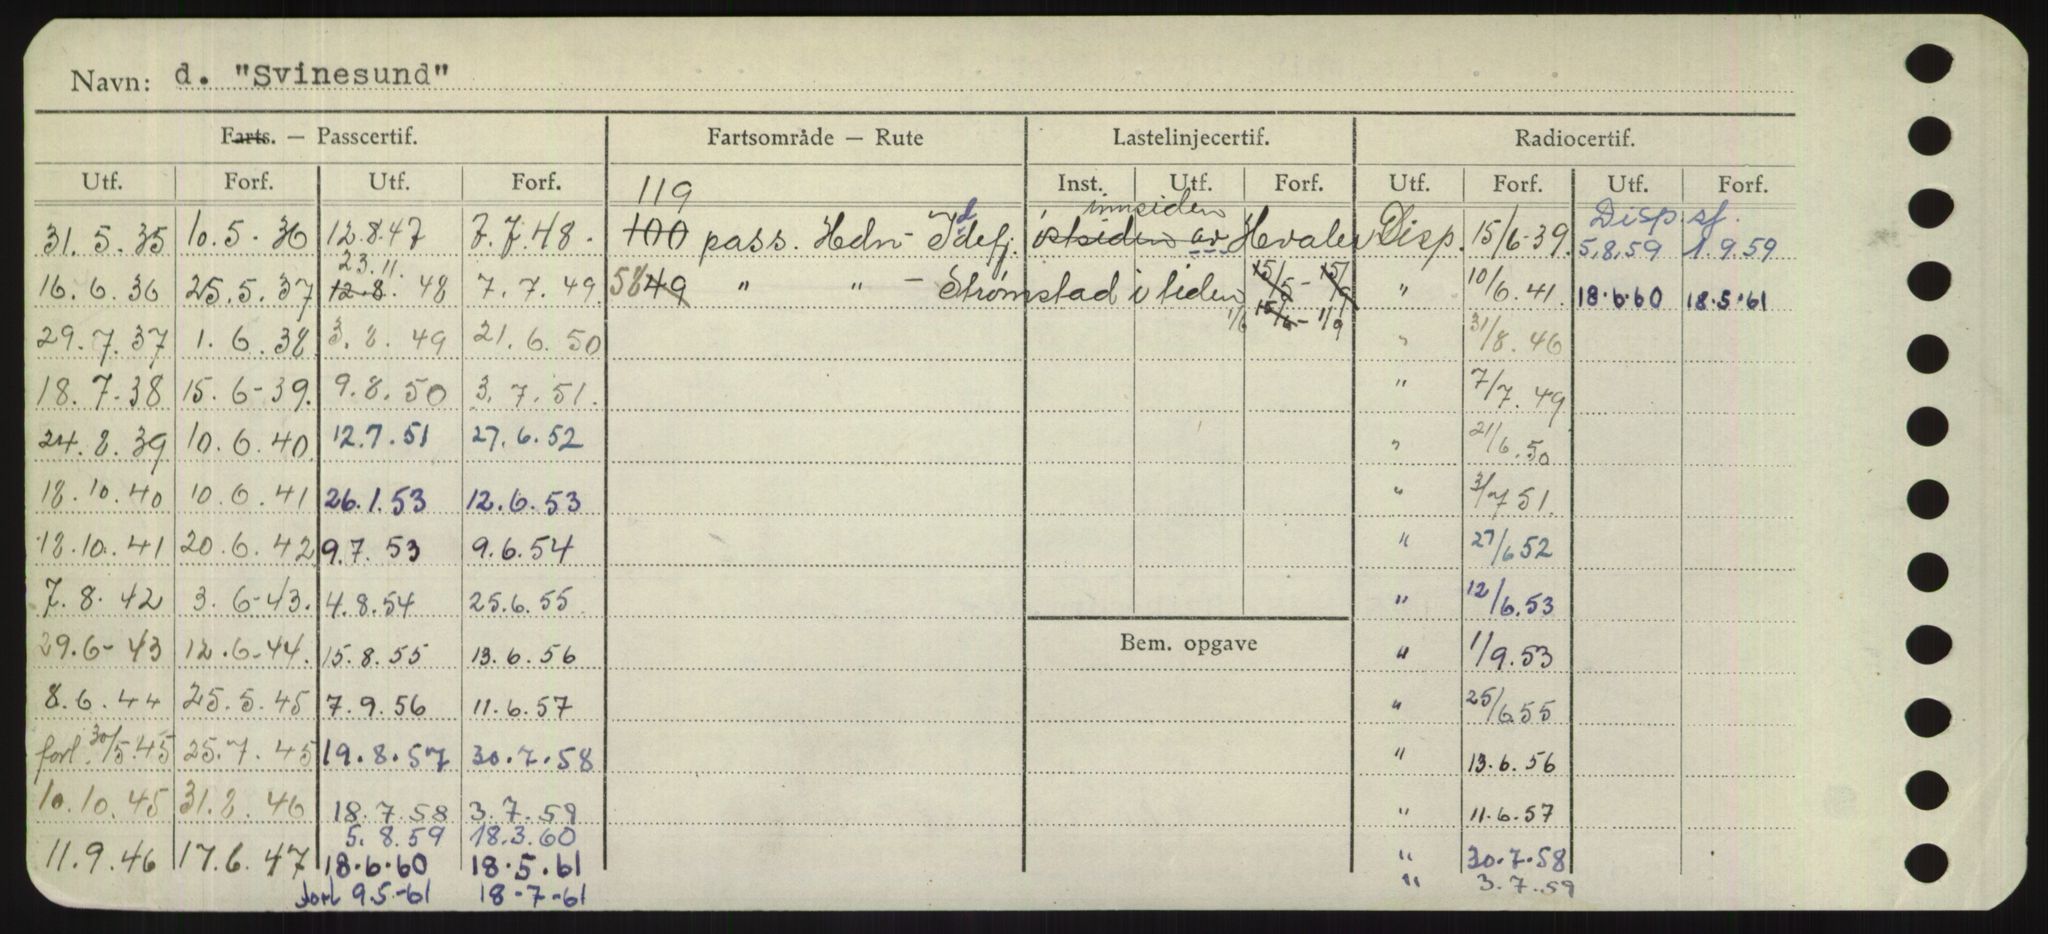 Navn: d. "Svinesund"
Farts. — Passcertif. Fartsområde — Rute Lastelinjecertif. Radiocertif.
Utf. Forf. Utf. Forf. 119 Inst. Utf. Forf. Utf. Forf. Utf. Forf.
innsiden Disp. sf.
31.5.35 10.5.36 12.8.47 7.7.48. 100 pass. Hdn - Idefj. østsiden av Hvaler Disp. 15/6-39. 5.8.59 1.9.59
23.11.
16.6.36 25.5.37 12.8. 48 7.7.49 58 49 " " - Strømstad i tiden 15/5 - 15/9 " 10/6.41. 18.6.60 18.5.61
1/6 15/6 - 1/9
29.7.37 1.6.38 3.8.49 21.6.50 " 31/8.46
18.7.38 15.6-39. 9.8.50 3.7.51. " 7/7.49
24.8.39 10.6.40 12.7.51 27.6.52 " 21/6.50
18.10.40 10.6.41 26.1.53 12.6.53 " 3/7 51.
18.10.41 20.6.42 9.7.53 9.6.54 " 27/6 52
7.8.42 3.6-43. 4.8.54 25.6.55 " 12/6.53
Bem. opgave
29.6-43 12.6-44. 15.8.55 13.6.56 " 1/9.53
8.6.44 25.5.45 7.9.56 11.6.57 " 25/6 55
forl. 30/5.45 25.7.45 19.8.57 30.7.58 " 13.6.56
10.10.45 31.8.46 18.7.58 3.7.59 " 11.6.57
5.8.59 18.3.60
11.9.46 17.6.47 18.6.60 18.5.61 " 30.7.58
forl 9.5-61 18-7-61 " 3.7.59